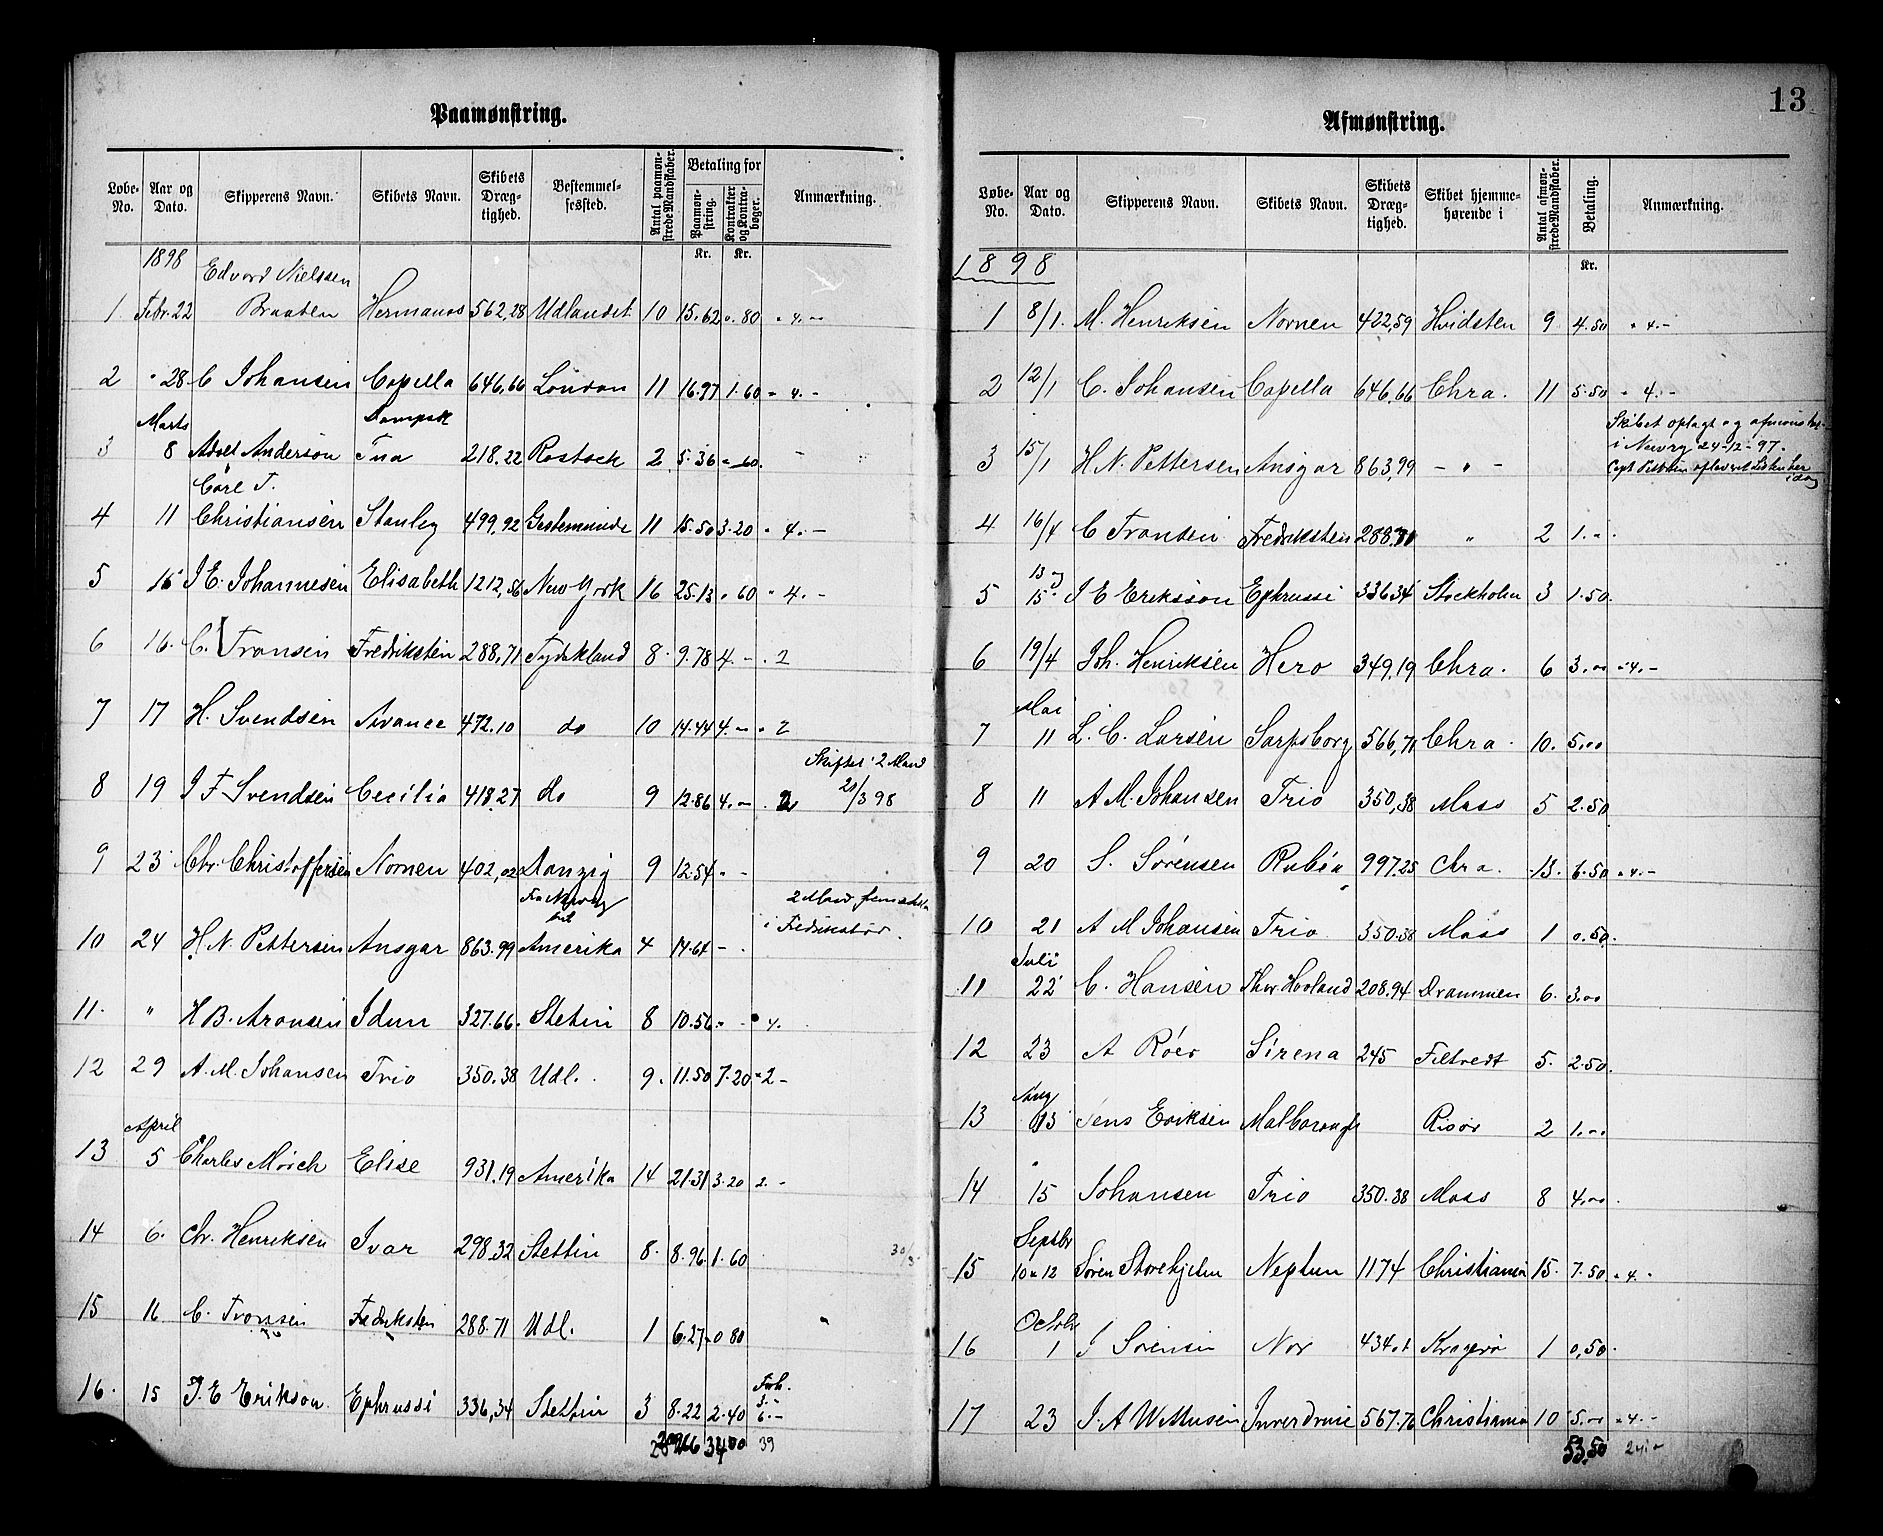 13
Paamønstring.
Løbe-No. Aar og Dato. Skipperens Navn. Skibets Navn. Skibets Dræg-tighed. Bestemmel-sessted. Antal paamøn-strede Mandskaber. Betaling for Paamøn-string. Kontrakter og Kontra-bøger. Anmærkning.
Kr. Kr.
1898 Edvard Nielssen
1 Febr. 22 Braaten Hermanos 562,28 Udlandet 10 15.62 ". 80 " 4. --
2 " 28 C Johansen Capella 646,66 London 11 16.97 1.60 " 4. -
Marts Dampsk
3 8 Adolf Anderson Tua 218.22 Rostock 2 5.36 " 60. -
Carl F.
4 11 Christiansen Stanley 499,92 Gestemünde 11 15.50 3.20 " 4. -
5 15 J E. Johannesen Elisabeth 1212,56 New York 16 25.13 " 60 " 4. -
6 16. C. Fransen Fredriksten 288,71 Tydskland 8. 9.78 4. - . 2
7 17 H. Svendsen Avance 472.10 do 10 14.44 4. - " 2
Skiftet 2 Mand
8 19 J F Svendsen Cecilia 418.27 do 9 12.86 4. - . 2 20/3 98
9 23 Chr. Christoffersen Nornen 402,02 Danzig 9 12.54 " -
2 Mand
Fra til i Fredrikstad.
10 24 H. N. Pettersen Ansgar 863.99 Amerika 4 14.64 - .
11. " H B. Aronsen Idun 327.66. Stetin 8 10.56 " - " 4.
12 29 A. M. Johansen Trio 350.38 Udl. 9. 11.50 7.20 " 2 -
April
13 5 Charles Mørch Elise 931.19 Amerika 14 21.31 3.20 2. -
14 6. Chr. Henriksen Ivar 298,32 Stettin 8. 8.96 1.60 30/3
15 11 C. Fransen Fredriksten 288.71 Udl. 1 6.27 0 80
Forh.
16. 15 J. E Erikson Ephrussi 336,34 Stettin 3 8.22 2.40 5.- 6.-
34 00 39
Afmønstring.
Løbe-No. Aar og Dato. Skipperens Navn. Skibets Navn. Skibets Dræg-tighed. Skibet hjemme-hørende i Antal afmøn-strede Mandskaber. Betaling. Anmærkning.
Kr.
1898
1 8/1. M. Henriksen Nornen 422,59 Hvidsten 9 4.50 " 4. -
2 12/1 C. Johansen Capella 646,66 Chra. 11 5.50 " 4. -
Skibet oplagt og afmønstret
i Newry 24-12-97.
3 15/1 H. N. Pettersen Ansgar 863,99 - " - Capt Pettersen afleveret Listen her idag
4 16/4 C Fransen Fredriksten 288.71 " 2 1. " .
5 13 og 15 J E Eriksson Ephrussi 336.34 Stockholm 3 1.50.
6 19/4 Joh. Henriksen Hero 349,19 Chra. 6 3. 00 " 4. -
Mai
7 11 L. C. Larsen Sarpsborg 566,71 Chra. 10. 5.00
8 11 A M. Johansen Trio 350,38 Moss 5 2.50
9 20 S. Sørensen Rubia 997.25 Chra. 13. 6.50 " 4. -
10 21 A M Johansen Trio 350.38 Moss 1 0.50.
Juli
11 22 C. Hansen Thor Hovland 208.94 Drammen 6. 3.00
12 23 A Röer Sirena 245 Filtvedt 5. 2.50.
Aug
13 13 Jens Eriksen Malborough Risør 2 1. --
14 15 Johansen Trio 350.38 Moss 8 4. 00 .
Septbr
15 10 & 12 Søren Storehjelm Neptun 1174 Christiania 15. 7.50 " 4. -
Octobr
16 1 J Sørensen Nor 434.01 Kragerø 1 0,50.
17 23 J. A Wettusen Inverdruie 567.76 Christiania 10 5.00 " 4. -
53.50